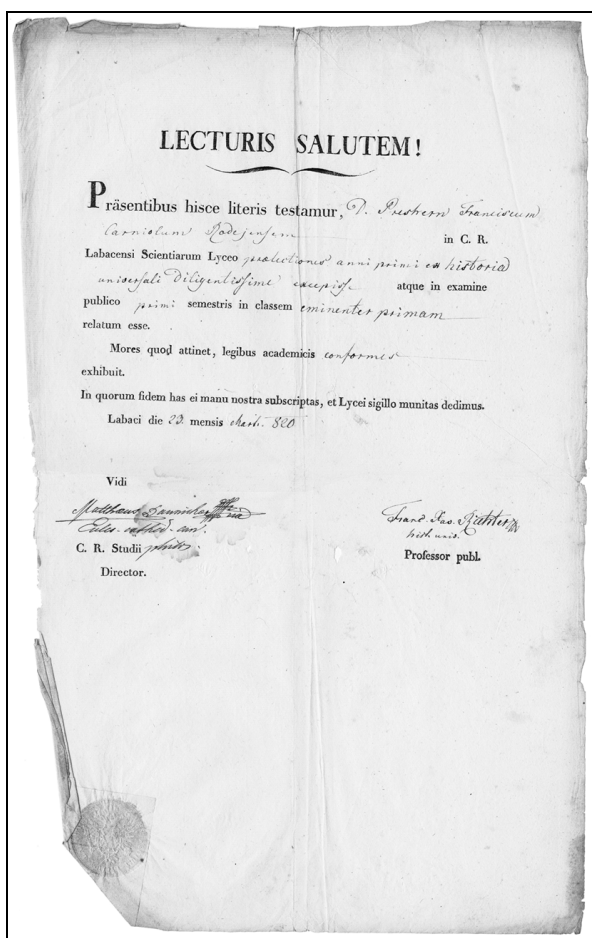 LECTURIS SALUTEM!
Präsentibus hisce literis testamur, D. Preshern Franciscum
Carniolum Rodejensem in C. R.
Labacensi Scientiarum Lyceo prælectiones anni primi ex historia
universali diligentissime excepisse atque in examine
publico primi semestris in classem eminenter primam
relatum esse.
Mores quod attinet, legibus academicis conformes
exhibuit.
In quorum fidem has ei manu nostra subscriptas, et Lycei sigillo munitas dedimus.
Labaci die 23. mensis Marti. 820
Vidi
Matthæus
Eccles. cathed. can.
C. R. Studii philos.
Director.
Franc. Xav. Richter
hist. univ.
Professor publ.